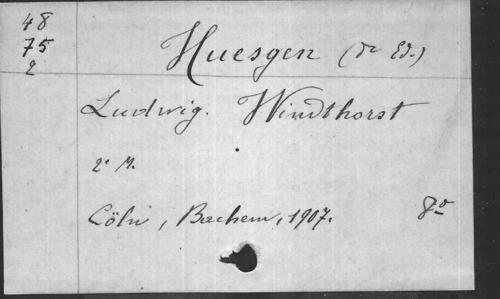 48
75
2
Huesgen (Dr Ed.)
Ludwig. Windthorst
2e M.
Cöln, Bachem, 1907. 8o